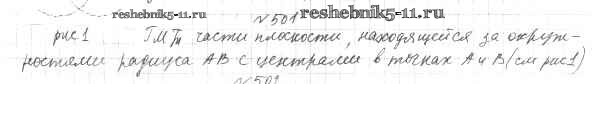 №501
reshebnik5-11.ru
reshebnik5-11.ru
рис1 ГМТт части плоскости, находящейся за окруж-
ностями радиуса AB с центрами в точках A и B (см рис1)
№501